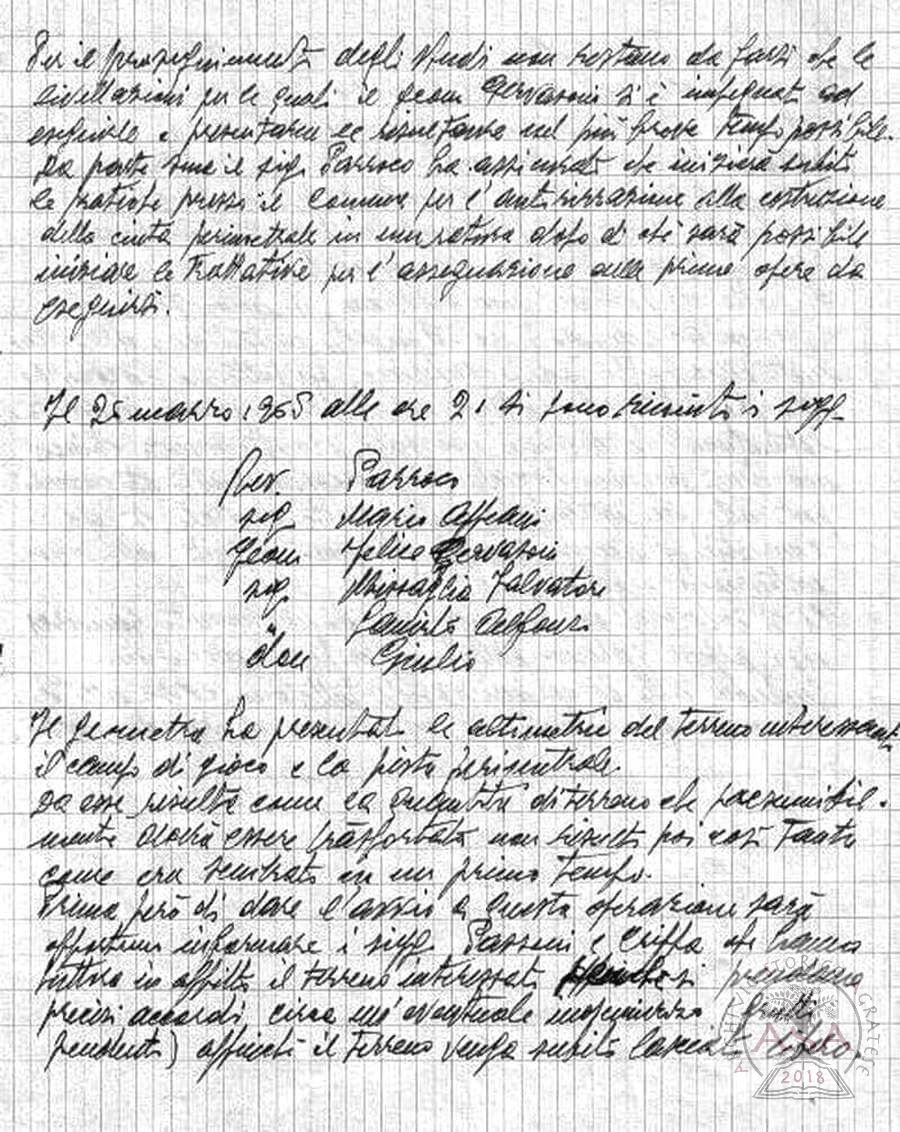 Per il proseguimento degli studi non restano da farsi che le
livellazioni per le quali il geom Gervasoni si è impegnato ad
eseguirle e presentarne le risultanze nel più breve tempo possibile.
Da parte sua il sig. Parroco ha assicurato che inizierà subito
le pratiche presso il Comune per l'autorizzazione alla costruzione
della cinta perimetrale in muratura dopo di chè sarà possibile
iniziare le trattative per l'assegnazione della prima opera da
eseguirsi.
Il 25 marzo 1965 alle ore 21 si sono riuniti i sigg.
Rev. Parroco
sig. Mario
Geom Felice Gervasoni
sig. Missaglia Salvatore
" Alfonso
don Giulio
Il geometra ha presentato le altimetrie del terreno interessante
il campo di gioco e la pista perimetrale.
Da esse risulta come la quantità di terreno che presumibil-
mente dovrà essere trasportata non risulti poi così tanta
come era sembrato in un primo tempo.
Prima però di dare l'avvio a questa operazione sarà
opportuno informare i sigg. Passoni e che hanno
tuttora in affitto il terreno interessato si prendano
precisi accordi circa un'eventuale (frutti
pendenti) affinchè il terreno venga subito lasciato libero.
ARCHIVIO STORICO AGRATESE
ASA
2018